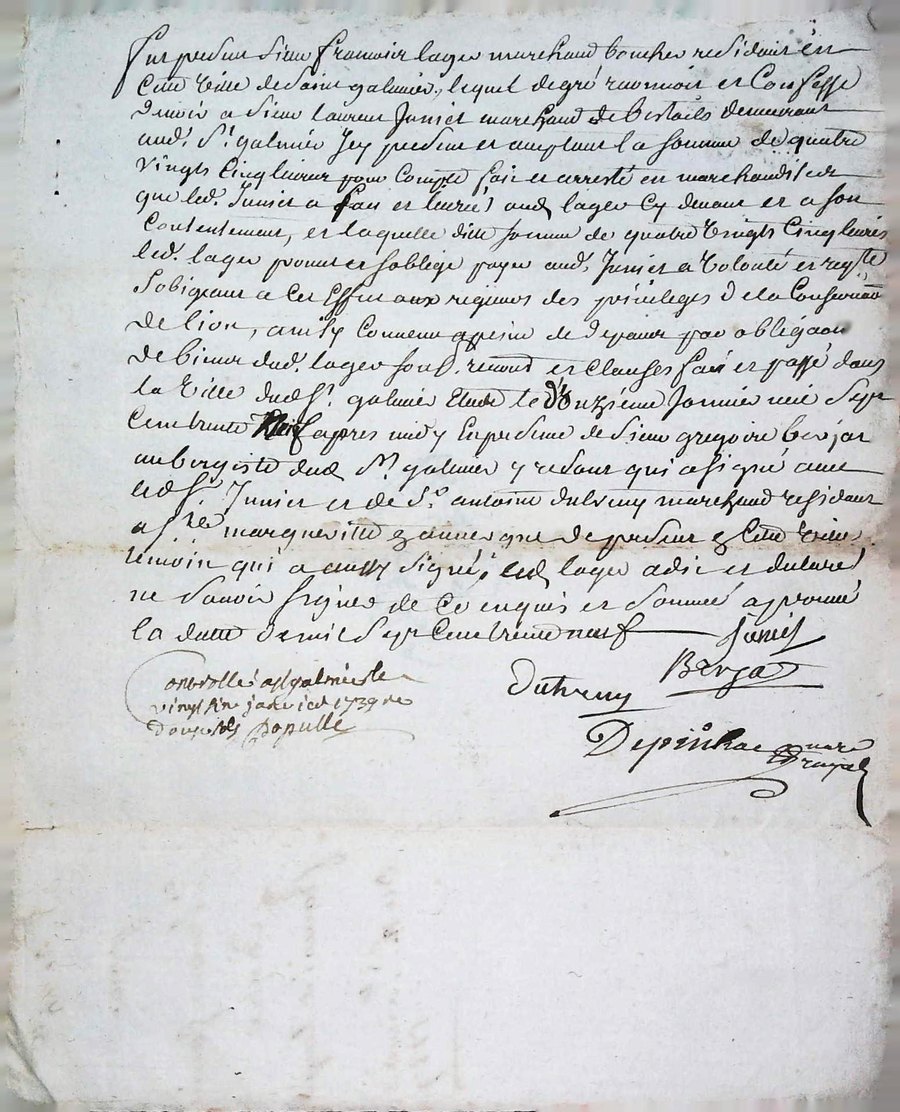 fut present sieur francois lager marchand boucher residant en
cette ville de saint galmier, lequel de gré reconnoit et Confesse
devoir a sieur laurent Junier marchand de bestails demeurant
aud. St. galmier Jcy present et acceptant la somme de quatre
vingts Cinq livres pour Compte fait et arresté en marchandises
que led. Junier a fait et livré aud lager Cy devant et a son
Contentement, et laquelle ditte somme de quatre Vingts Cinq livres
led. lager promet et soblige payer aud. Junier a Volonté et reqte
Sobligeant a Cet Effet aux rigueurs des privileges de la Conservaon
de lion, ainsy Convenu a peine de depans par obligaon
de biens dud. lager soub. renond et Clauses fait et passé dans
la Ville dud St. galmier Etude le Onzieme Janvier mil Sept
Cent trente Neuf apres midy En presence de sieur gregoire berjat
aubergiste dud St. galmier y residant qui a signé avec
led S. Junier et de Sr. antoine dutreuy marchand residant
a Ste margueritte en auvergne de present en Cette Ville
temoin qui a aussy signé, led lager a dit et declaré
ne Savoir Signer de Ce enquis et Sommé approuvé
la datte de mil Sept Cent trente neuf Junier
Berjat
Dutreuy
Controllé a st galmier le
vingt un janvier 1739 re
Douze sols Populle
Depinhac nore
Royal